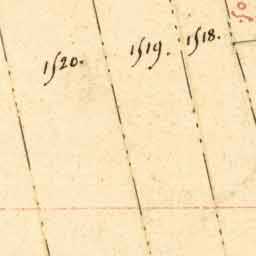 1520.
1519.
1518.
50